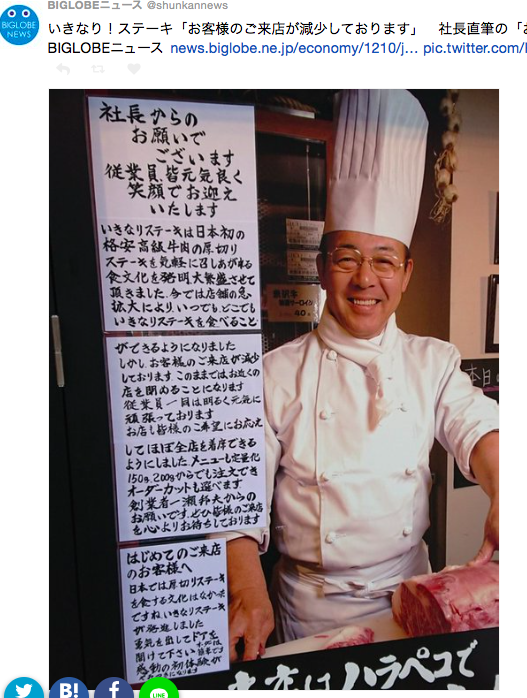 BIGLOBEニュース @shunkannews
いきなり！ステーキ「お客様のご来店が減少しております」 社長直筆の「お
BIGLOBEニュース news.biglobe.ne.jp/economy/1210/j… pic.twitter.com/
BIGLOBE
NEWS
社長からの
お願いで
ございます
従業員、皆元気良く
笑顔でお迎え
いたします
いきなりステーキは日本初の
格安高級牛肉の厚切り
ステーキを気軽に召しあがれる
食文化を発明大繁盛させて
頂きました。今では店舗の急
拡大により、いつでも、どこでも
いきなりステーキを食べること
ができるようになりました
しかし、お客様のご来店が減少
しております。このままではお近くの
店を閉めることになります
従業員一同は明るく元気に
頑張っております
お店も皆様のご希望にお応え
してほぼ全店を着席できる
ようにしました。メニューも定量化
150g、200gからでも注文でき
オーダーカットも選べます
創業者一瀬邦夫からの
お願いです。ぜひ皆様のご来店
を心よりお待ちしております
はじめてのご来店
のお客様へ
日本では厚切りステーキ
を食する文化はなかった
ですね。いきなりステーキ
が発進しました
勇気を出してドアを
開けて下さい
感動の初体験が
本日の
ハラペコで
B!
LINE